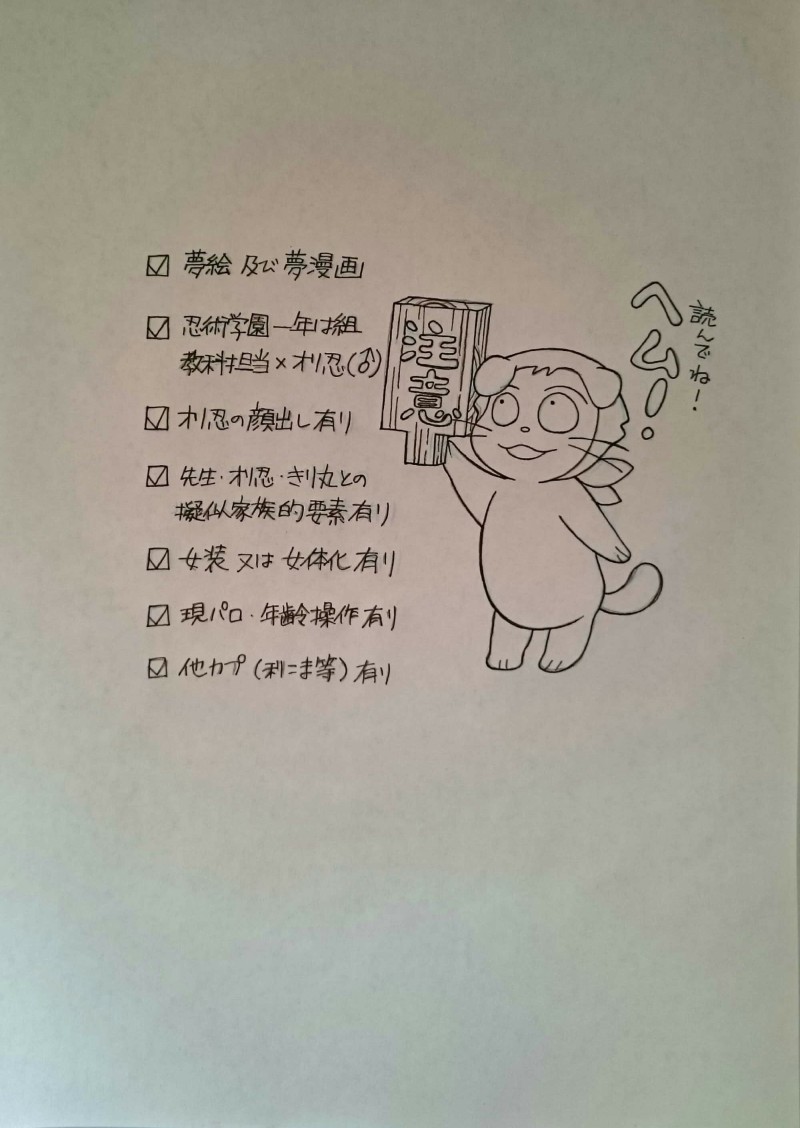 ☑ 夢絵 及び 夢漫画
☑ 忍術学園一年は組
教科担当×オリ忍(♂)
☑ オリ忍の顔出し有り
☑ 先生・オリ忍・きり丸との
擬似家族的要素有り
☑ 女装 又は 女体化 有り
☑ 現パロ・年齢操作有り
☑ 他カプ(利こま等)有り
注意
読んでね!
ヘムー。